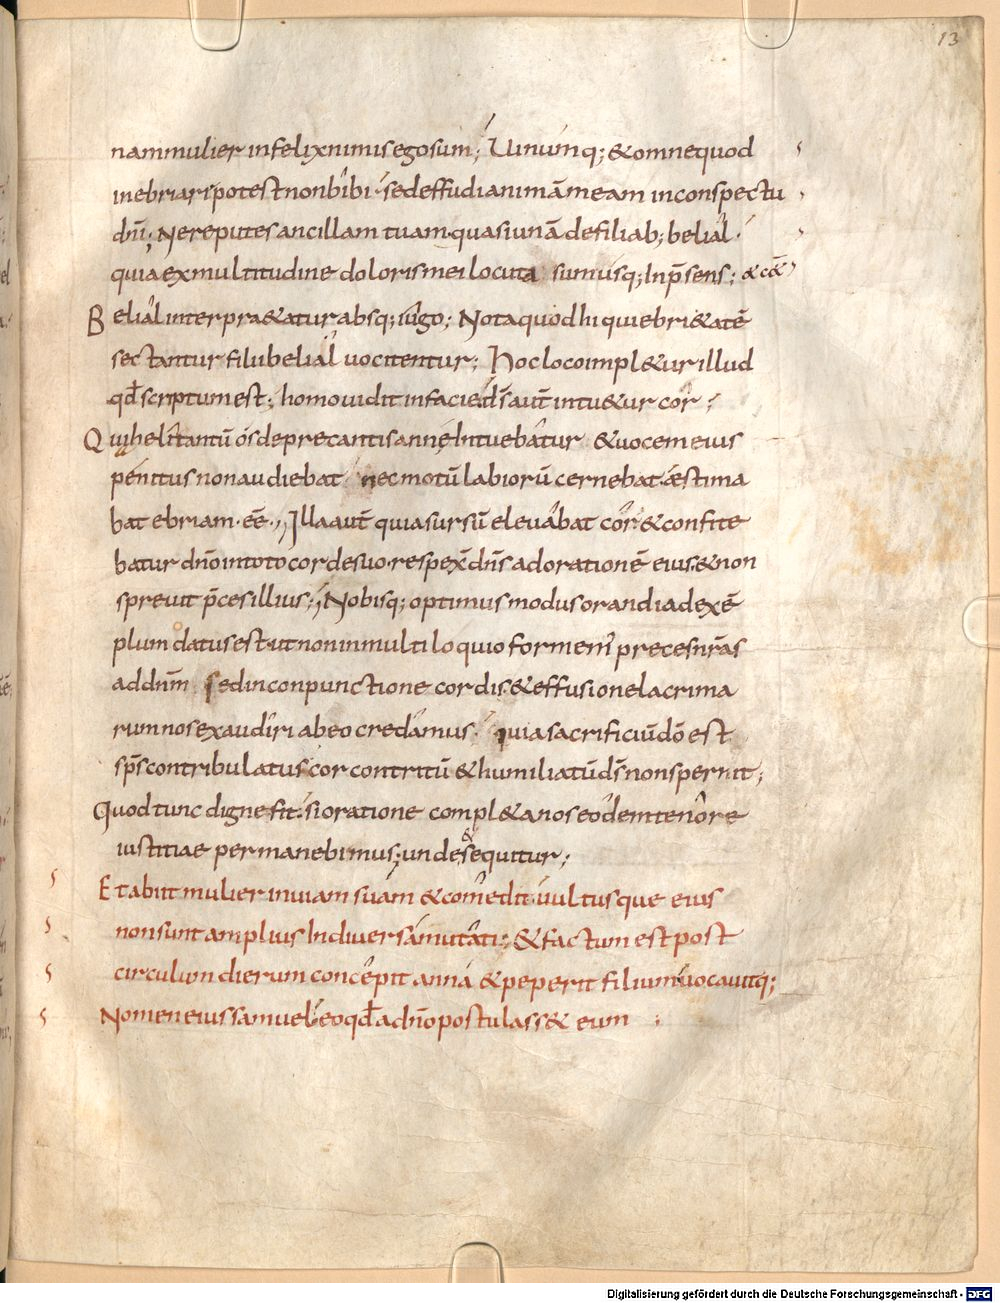 13
nam mulier infelix nimis ego sum; Uinumq; & omne quod
inebriari potest non bibi · sed effudi animā meam in conspectu
dn̄i; Ne reputes ancillam tuam quasi unā de filiab; belial ·
quia ex multitudine doloris mei locuta sum usq; In p̄sens; &c̄&
Belial interpr&atur absq; iugo; Nota quod hi qui ebri&atē
sectantur filii belial uocitentur; Hoc loco impl&ur illud
qđ scriptum est; homo uidit in facie d̄s aut̄ intu&ur cor;
Quia heli tantū os deprecantis annę Intuebatur & uocem eius
penitus non audiebat nec motū labiorū cernebat · æstima
bat ebriam · eē · Illa aut̄ quia sursū eleuabat cor & confite
batur dn̄o in toto corde suo · respex̄ dn̄s ad orationē eius & non
spreuit p̄ces illius; Nobisq; optimus modus orandi ad exē
plum datus est · ut non in multiloquio formem̄ preces nr̄as
ad dnm̄ sed in conpunctione cordis & effusione lacrima
rum nos exaudiri ab eo credamus · quia sacrificiū dō est
sp̄s contribulatus cor contritū & humiliatū d̄s non spernit;
Quod tunc digne fit · si oratione compl&a nos eodem tenore
iustitiae permanebimus; unde & sequitur;
Et abiit mulier in uiam suam & comedit · uultusque eius
non sunt amplius In diuersa mutati; & factum est post
circulum dierum concepit anna & peperit filium uocauitq;
Nomen eius samuel · eo qđ a dn̄o postulass& eum ;
Digitalisierung gefördert durch die Deutsche Forschungsgemeinschaft - DFG